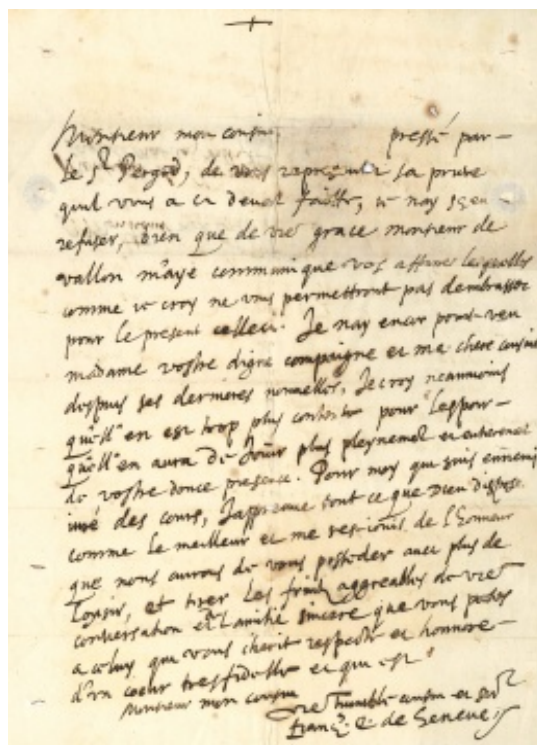 Monsieur mon cousin pressé par
le Sr Pergod, de vous representer la
quil vous a cu devoir faitte, ie nay sceu
refuser, bien que de vre grace monsieur de
vallon m'aye communique vos affaires lesquelles
comme ie croy ne vous permettront pas dembrasser
pour le present celleci. Je nay encor point veu
madame vostre digne compaigne et ma chere cousine
despuis ses dernieres nouvelles, Je croy neanmoins
qu'ell' en est trop plus contente pour l'espoir
qu'ell' en aura de Jouir plus pleynemet et entieremet
de vostre douce presence. Pour moy qui suis ennemi
iuré des cours, J'appreuve tout ce que Dieu dispose
comme le meilleur et me resiouis de l'honneur
que nous aurons de vous posseder avec plus de
loysir, et tirer les fruitz aggreables de vre
conversation et l'amitié sincere que vous portes
a celuy qui vous cherit respecte et honnore
d'un coeur tresfidelle et qui est
Monsieur mon cousin
vre humble cousin et ser
Franç. E. de Geneve